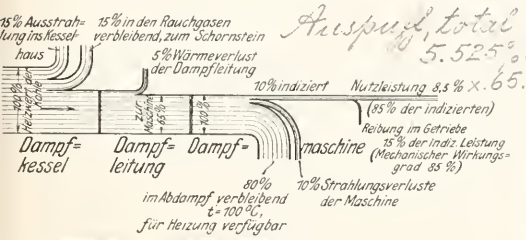 15% Ausstrah=
lung ins Kessel
haus
15% in den Rauchgasen
verbleibend, zum Schornstein
5% Wärmeverlust
der Dampfleitung
Auspuff, total
5.525%
10% indiziert
Nutzleistung 8,5% x .65
(85% der indizierten)
Reibung im Getriebe
15% der indiz. Leistung
(Mechanischer Wirkungs=
grad 85%)
100%
Heizwert der
Kohle
zur
Maschine
65%
100%
Dampf=
kessel
Dampf=
leitung
Dampf=
maschine
80%
im Abdampf verbleibend
t=100°C,
für Heizung verfügbar
10% Strahlungsverluste
der Maschine